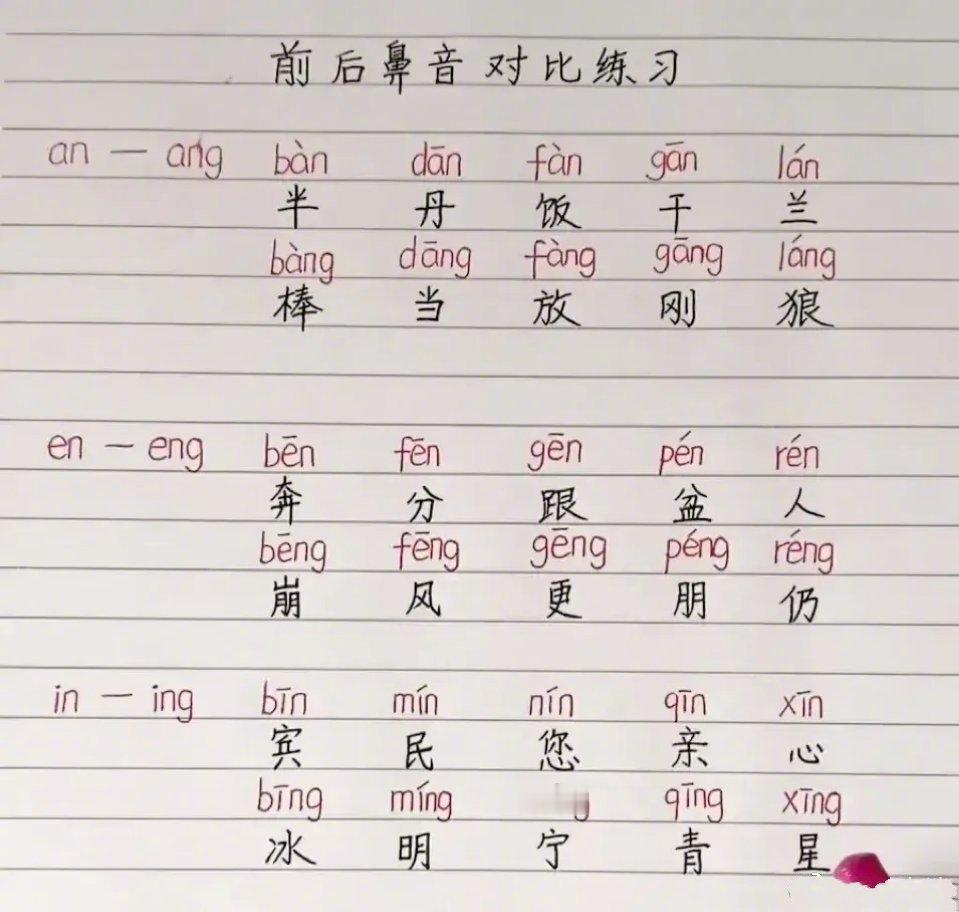 前后鼻音对比练习
an — ang bàn dān fàn gān lán
半 丹 饭 干 兰
bàng dāng fàng gāng láng
棒 当 放 刚 狼
en — eng bēn fēn gēn pén rén
奔 分 跟 盆 人
bēng fēng gēng péng réng
崩 风 更 朋 仍
in — ing bīn mín nín qīn xīn
宾 民 您 亲 心
bīng míng qīng xīng
冰 明 宁 青 星